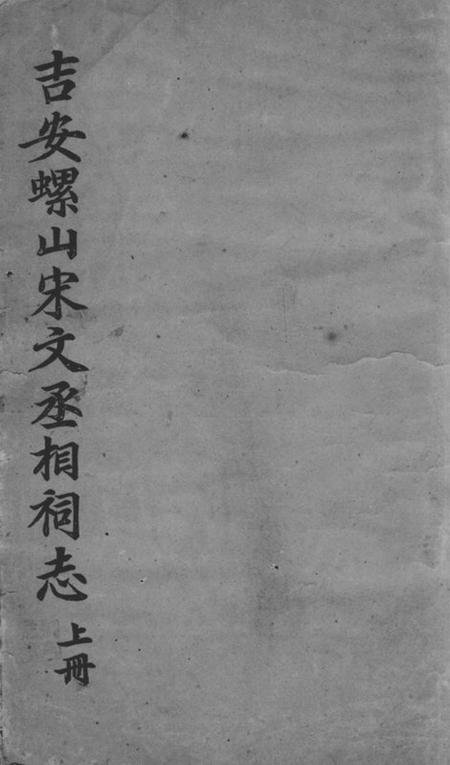 吉安螺山宋文丞相祠志
上冊